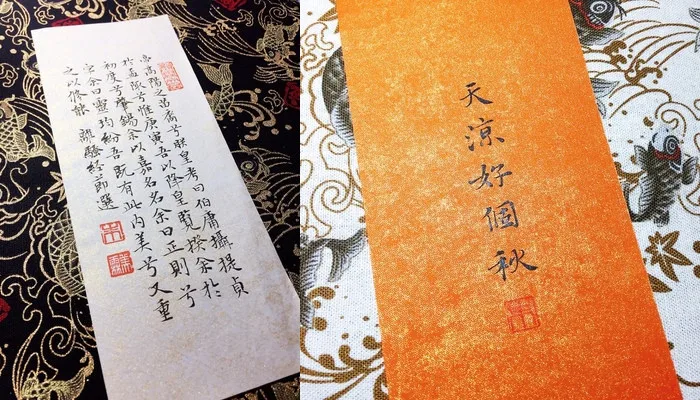 帝高陽之苗裔兮朕皇考曰伯庸攝提貞
於孟陬兮惟庚寅吾以降皇覽揆余於
初度兮肇錫余以嘉名名余曰正則兮
字余曰靈均紛吾既有此內美兮又重
之以修能 離騷經節選
天涼好個秋